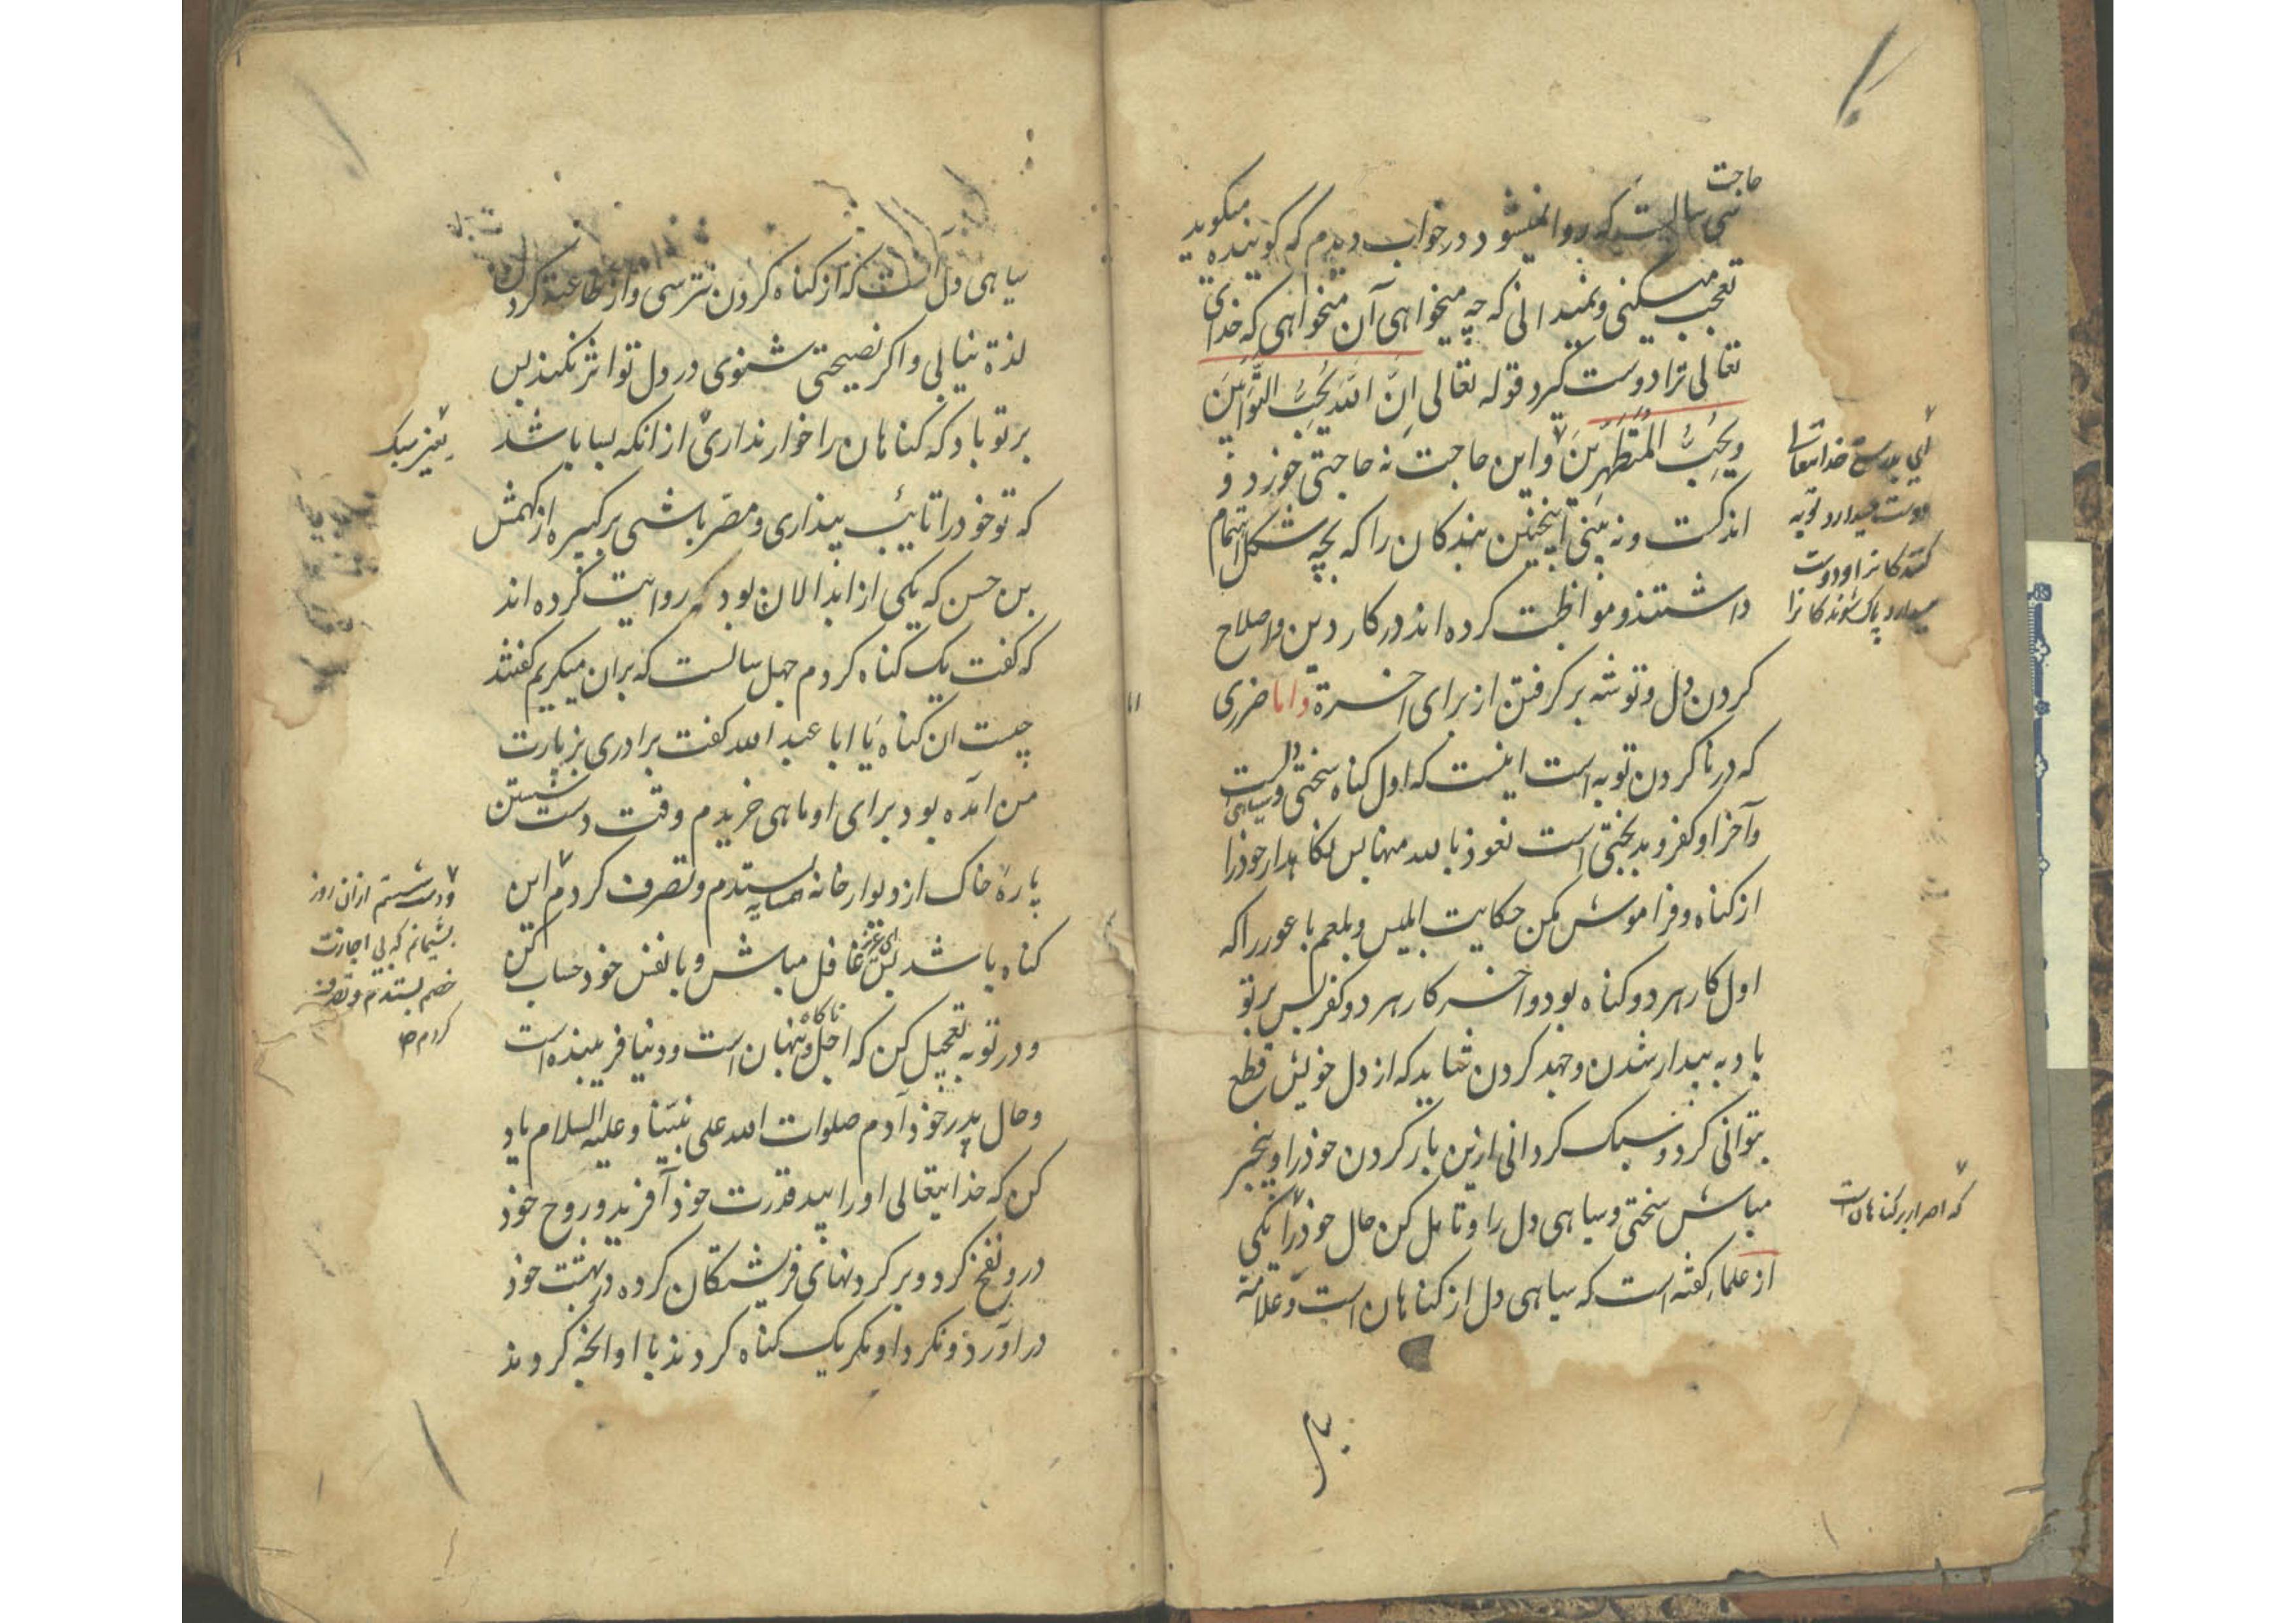 حاجت
سی سالیست که روا نمیشود در خواب دیدم که کوینده میکوید
تعجب میکنی و نمیدانی که چه میخواهی آن میخواهی که خدای
تعالی ترا دوست کیرد قوله تعالی اِنَّ اللّٰهَ یُحِبُّ التَّوَّابِینَ
وَیُحِبُّ المُتَطَهِّرِینَ واین حاجت نه حاجتی خورد و
اندکست و نه بینی اینچنین بندکان را که بچه شکل اهتمام
داشتند و مواظبت کرده اند در کار دین و اصلاح
کردن دل و توشه بر کرفتن از برای اخرة واما ضرری
که در نا کردن توبه است اینست که اول کناه سختی و سیاهی دلست
وآخر او کفر و بدبختی است نعوذ بالله منها پس نکاهدار خود را
از کناه و فراموش مکن حکایت ابلیس و بلعم باعور را که
اول کار هر دو کناه بود و اخر کار هر دو کفر پس بر تو
باد به بیدار شدن و جهد کردن شاید که از دل خویش قطع
بتوانی کرد و سبک کردانی ازین بار کردن خود را و بیخبر
مباش سختی و سیاهی دل را و تامل کن حال خود را یکی
از علما کفته است که سیاهی دل از کناهان است و علامة
ای بدرستی خدایتعالی
دوست میدارد توبه
کنندکانرا و دوست
میدارد پاک شوندکانرا
که اصرار بر کناهان است
سیاهی دل آنست که از کناه کردن نترسی و از طاعة کردن
لذة نیابی و اکر نصیحتی شنوی در دل تو اثر نکند پس
بر تو باد که کناهان را خوار نداری از انکه بسا باشد
که تو خود را تایب پنداری و مصر باشی بر کبیره از کهمش
بن حسن که یکی از ابدالان بود روایت کرده اند
که کفت یک کناه کردم چهل سالست که بران میکریم کفتند
چیست ان کناه یا ابا عبد الله کفت برادری بزیارت
من آمده بود برای او ماهی خریدم وقت دست شستن
پارۀ خاک از دیوار خانه همسایه بستدم و تصرف کردم این
کناه باشد پس ای عزیز غافل مباش و با نفس خود حساب کن
و در توبه تعجیل کن که اجل ناکاه و پنهان است و دنیا فریبنده است
و حال پدر خود آدم صلوات الله علی نبینا و علیه السلام یاد
کن که خدایتعالی او را بید قدرت خود آفرید و روح خود
درو نفخ کرد و بر کردنهای فرشتکان کرده در بهشت خود
در آورد و نکرد او مکر یک کناه کردند با او انچه کردند
بغیر سبک
و دست شستم ازان روز
پشیمانم که بی اجازت
خصم بستدم و تصرف
کردم